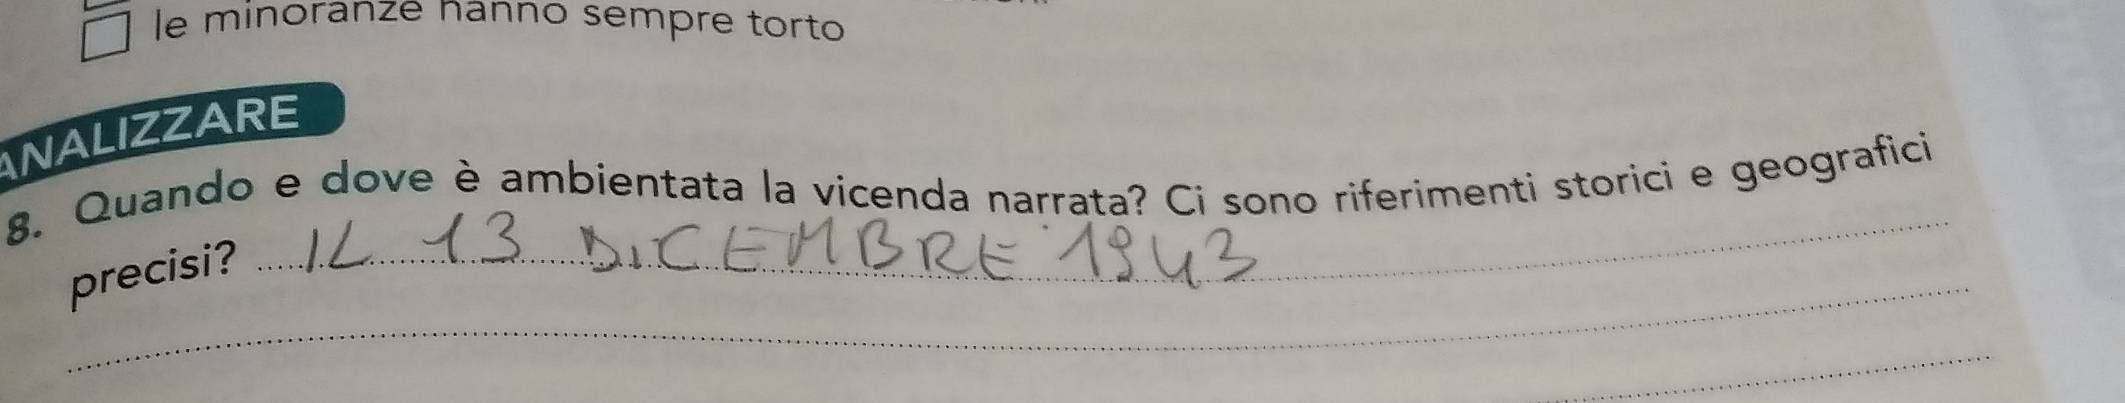 le minoranze hanno sempre torto
ANALIZZARE
8. Quando e dove è ambientata la vicenda narrata? Ci sono riferimenti storici e geografici
precisi? IL 13 DICEMBRE 1943